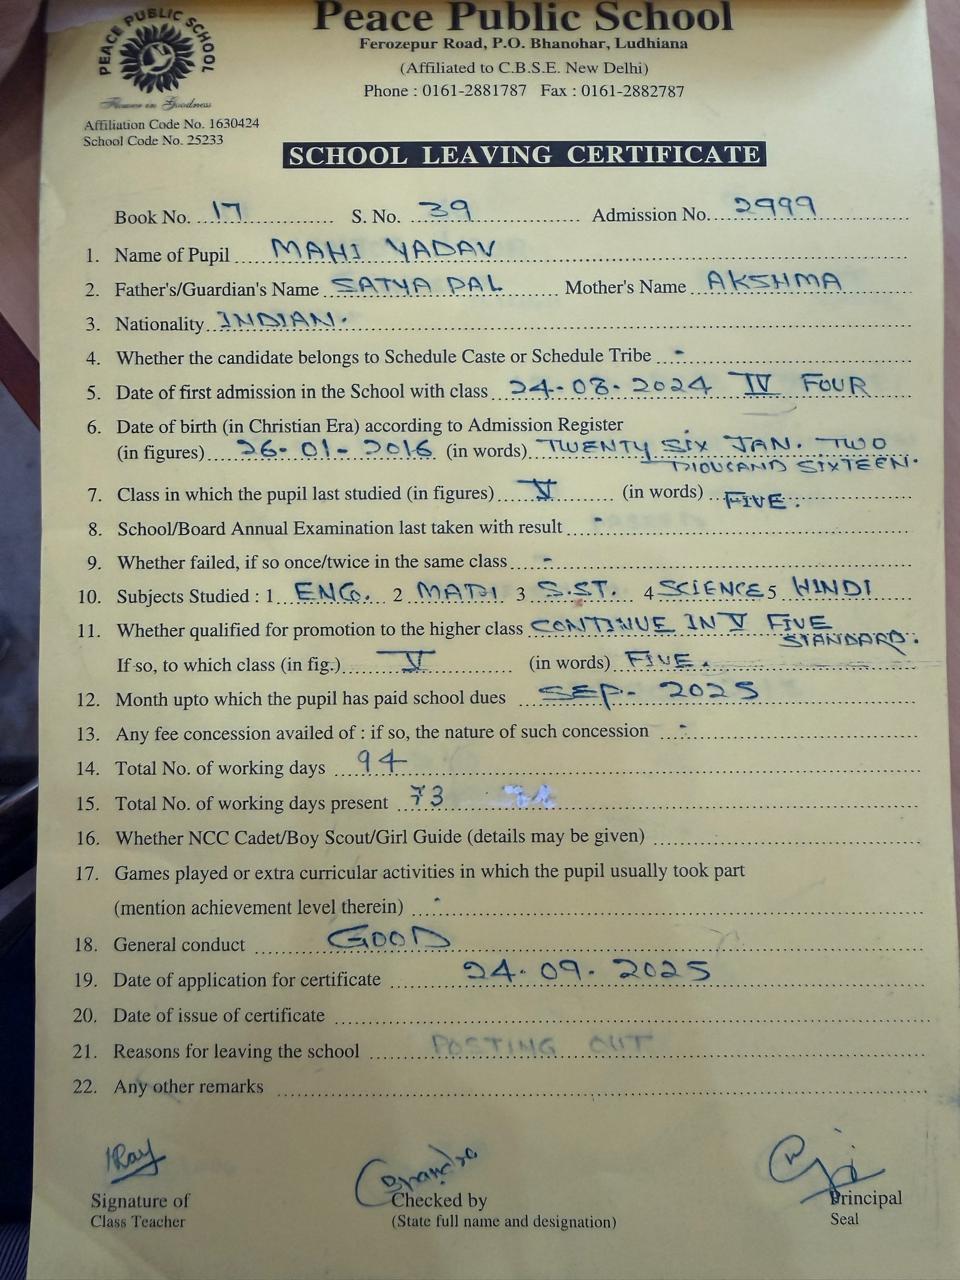 PEACE PUBLIC SCHOOL
Flower in Goodness
Affiliation Code No. 1630424
School Code No. 25233
Peace Public School
Ferozepur Road, P.O. Bhanohar, Ludhiana
(Affiliated to C.B.S.E. New Delhi)
Phone : 0161-2881787 Fax : 0161-2882787
SCHOOL LEAVING CERTIFICATE
Book No. 17 S. No. 39 Admission No. 2999
1. Name of Pupil MAHI YADAV
2. Father's/Guardian's Name SATYA PAL Mother's Name AKSHMA
3. Nationality INDIAN.
4. Whether the candidate belongs to Schedule Caste or Schedule Tribe -
5. Date of first admission in the School with class 24-08-2024 IV FOUR
6. Date of birth (in Christian Era) according to Admission Register
(in figures) 26-01-2016 (in words) TWENTY SIX JAN. TWO
THOUSAND SIXTEEN.
7. Class in which the pupil last studied (in figures) V (in words) FIVE.
8. School/Board Annual Examination last taken with result -
9. Whether failed, if so once/twice in the same class -
10. Subjects Studied : 1 ENG. 2 MATH 3 S.ST. 4 SCIENCE 5 HINDI
11. Whether qualified for promotion to the higher class CONTINUE IN V FIVE
STANDARD.
If so, to which class (in fig.) V (in words) FIVE.
12. Month upto which the pupil has paid school dues SEP- 2025
13. Any fee concession availed of : if so, the nature of such concession -
14. Total No. of working days 94
15. Total No. of working days present 73
16. Whether NCC Cadet/Boy Scout/Girl Guide (details may be given)
17. Games played or extra curricular activities in which the pupil usually took part
(mention achievement level therein) -
18. General conduct GOOD
19. Date of application for certificate 24-09-2025
20. Date of issue of certificate
21. Reasons for leaving the school POSTING OUT
22. Any other remarks
Signature of
Class Teacher
Checked by
(State full name and designation)
Principal
Seal